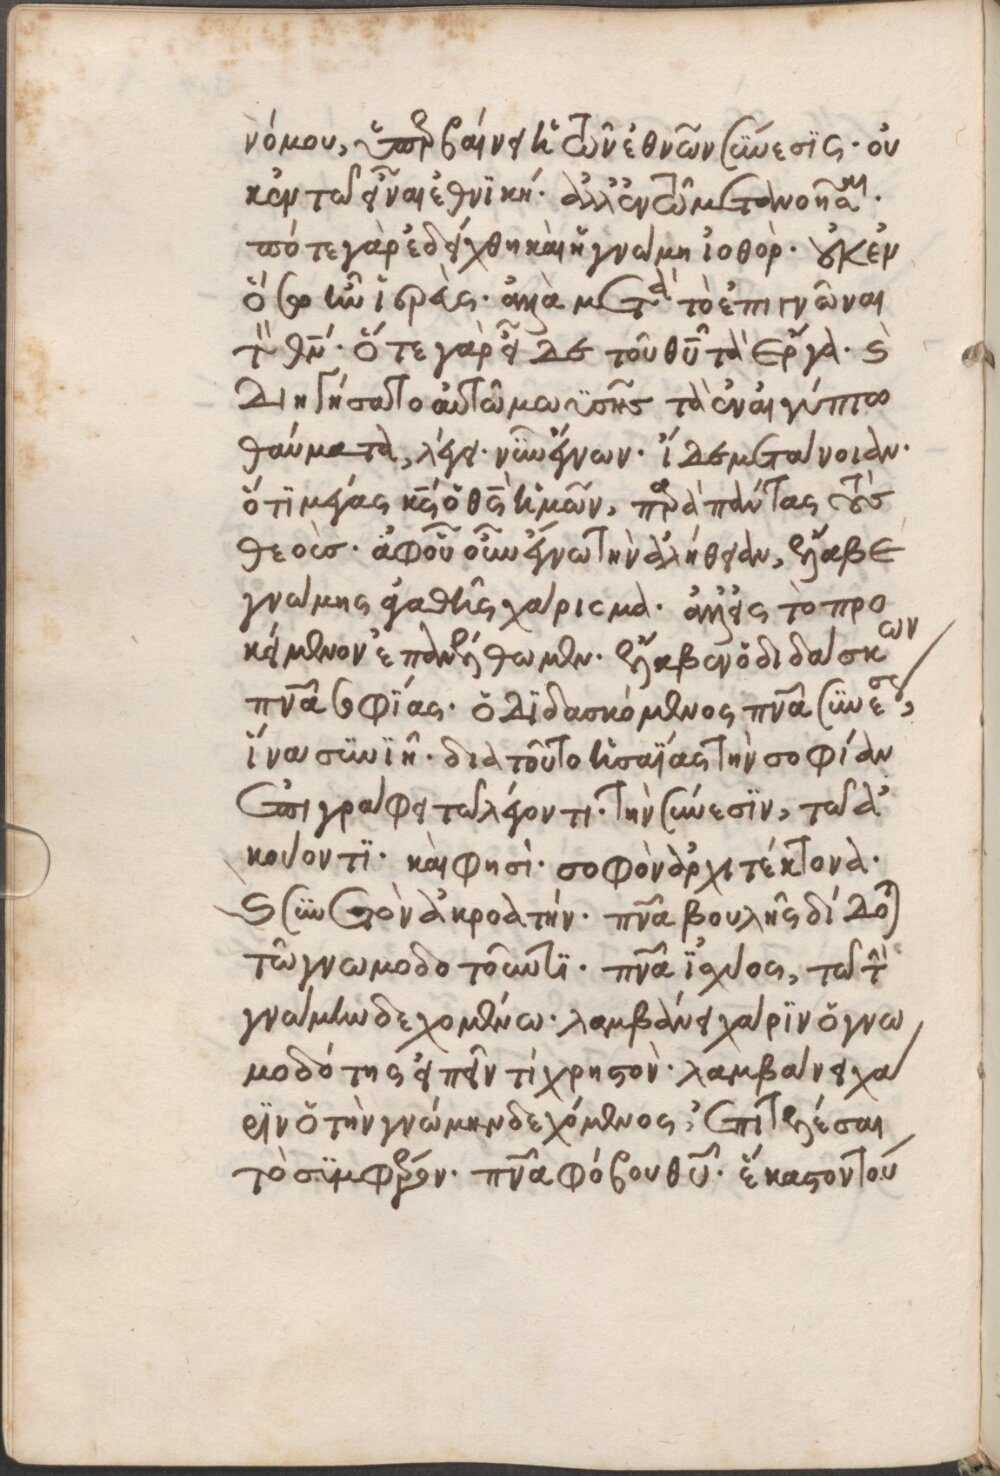 νόμου, ὑπερβαίνει ἡ τῶν ἐθνῶν σύνεσϊς· οὐ
κ ἐν τῶ εἶναι ἐθνϊκή· ἀλλ ἐν τῶ μετανοῆσαι·
πότε γὰρ ἐδείχθη καὶ ἡ γνώμη ἰοθόρ· οὐκ ἐν
ὅσω ἦν ἱερεύς· ἀλλὰ μετὰ τὸ ἐπιγνῶναι
τὸν θν̅· ὅτε γὰρ εἶδε τοῦ θυ̅ τὰ ἔργα· καὶ
διηγήσατο αὐτῶ μωϋσῆς τὰ ἐν αἰγύπτω
θαύματα, λέγει· νῦν ἔγνων· ἴδε μετάνοιαν·
ὅτϊ μέγας κς̅ ὁ θς̅ ἡμῶν, παρὰ πάντας τοὺς
θεούς· ἀφοῦ οὖν ἔγνω τὴν ἀλήθειαν, ἔλαβε
γνώμης ἀγαθῆς χάρισμα· ἀλλ εἰς τὸ προ
κείμενον ἐπανέλθωμεν· ἔλαβεν ὁ διδάσκων
πνα̅ σοφίας· ὁ δϊδασκόμενος πνα̅ συνέσεως,
ἵνα συνϊῆ· διὰ τοῦτο ἡσαΐας τὴν σοφίαν
ἐπιγράφει τῶ λέγοντι· τὴν σύνεσϊν, τῶ ἀ
κούοντϊ· καὶ φησὶ· σοφὸν ἀρχιτέκτονα·
καὶ συνετὸν ἀκροατήν· πνα̅ βουλῆς δίδοται
τῶ γνωμοδοτοῦντϊ· πνα̅ ἰσχύος, τῶ τὴν
γνώμην δεχομένω· λαμβάνει χάρϊν ὁ γνω
μοδότης εἰπεῖν τί χρηστόν· λαμβάνει χά
ρϊν ὁ τὴν γνώμην δεχόμενος, ἐπιτελέσαι
τὸ συμφέρον· πνα̅ φόβου θυ̅· ἕκαστον τού